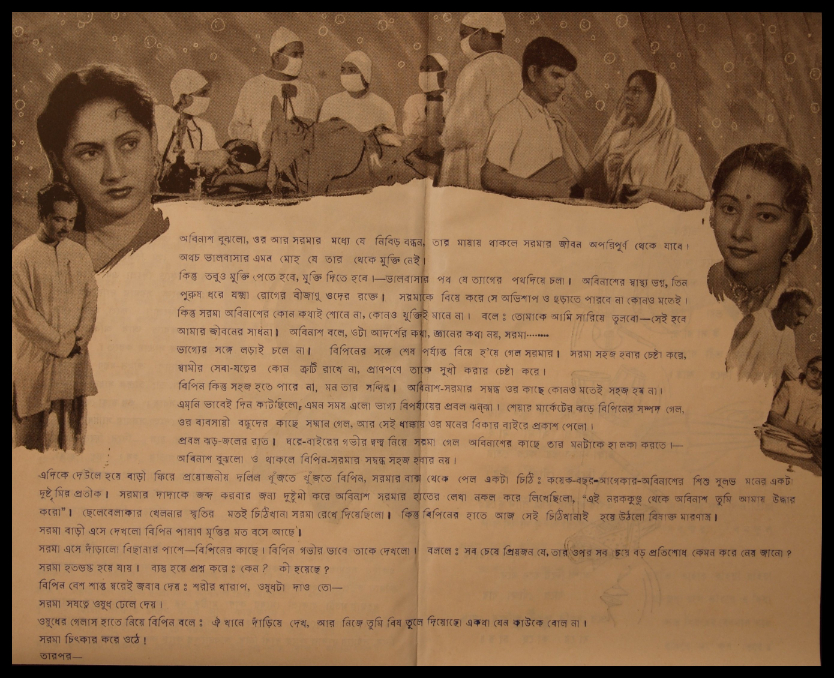 অবিনাশ বুঝলো, ওর আর সরমার মধ্যে যে নিবিড় বন্ধন, তার মায়ায় থাকলে সরমার জীবন অপরিপূর্ণ থেকে যাবে।
অথচ ভালবাসার এমন মোহ যে তার থেকে মুক্তি নেই।
কিন্তু তবুও মুক্তি পেতে হবে, মুক্তি দিতে হবে।—ভালবাসার পথ যে ত্যাগের পথদিয়ে চলা। অবিনাশের স্বাস্থ্য ভগ্ন, তিন
পুরুষ ধরে যক্ষ্মা রোগের বীজাণু ওদের রক্তে। সরমাকে বিয়ে করে সে অভিশাপ ও ছড়াতে পারবে না কোনও মতেই।
কিন্তু সরমা অবিনাশের কোন কথাই শোনে না, কোনও যুক্তিই মানে না। বলে : তোমাকে আমি সারিয়ে তুলবো—সেই হবে
আমার জীবনের সাধনা। অবিনাশ বলে, ওটা আদর্শের কথা, জ্ঞানের কথা নয়, সরমা········
ভাগ্যের সঙ্গে লড়াই চলে না। বিপিনের সঙ্গে শেষ পর্য্যন্ত বিয়ে হ'য়ে গেল সরমার। সরমা সহজ হবার চেষ্টা করে,
স্বামীর সেবা-যত্নের কোন ত্রুটি রাখে না, প্রাণপণে তাকে সুখী করার চেষ্টা করে।
বিপিন কিন্তু সহজ হতে পারে না, মন তার সন্দিগ্ধ। অবিনাশ-সরমার সম্বন্ধ ওর কাছে কোনও মতেই সহজ হয় না।
এমনি ভাবেই দিন কাটছিলো, এমন সময় এলো ভাগ্য বিপর্য্যয়ের প্রবল ঝন্‌ঝা। শেয়ার মার্কেটের ঝড়ে বিপিনের সম্পদ গেল,
ওর ব্যবসায়ী বন্ধুদের কাছে সম্মান গেল, আর সেই ধাক্কায় ওর মনের বিকার বাইরে প্রকাশ পেলো।
প্রবল ঝড়-জলের রাত। ঘরে-বাইরের গভীর দ্বন্দ্ব নিয়ে সরমা গেল অবিনাশের কাছে তার মনটাকে হালকা করতে।—
অবিনাশ বুঝলো ও থাকলে বিপিন-সরমার সম্বন্ধ সহজ হবার নয়।
এদিকে দেউলে হয়ে বাড়ী ফিরে প্রয়োজনীয় দলিল খুঁজতে খুঁজতে বিপিন, সরমার বাক্স থেকে পেল একটা চিঠি : কয়েক-বছর-আগেকার-অবিনাশের শিশু সুলভ মনের একটা
দুষ্টুমির প্রতীক। সরমার দাদাকে জব্দ করবার জন্য দুষ্টুমী করে অবিনাশ সরমার হাতের লেখা নকল করে লিখেছিলো, "এই নরককুন্ড থেকে অবিনাশ তুমি আমায় উদ্ধার
করো"। ছেলেবেলাকার খেলনার স্মৃতির মতই চিঠিখানা সরমা রেখে দিয়েছিলো। কিন্তু বিপিনের হাতে আজ সেই চিঠিখানাই হয়ে উঠলো বিষাক্ত মারণাস্ত্র।
সরমা বাড়ী এসে দেখলো বিপিন পাষাণ মূর্ত্তির মত বসে আছে।
সরমা এসে দাঁড়ালো বিছানার পাশে—বিপিনের কাছে। বিপিন গভীর ভাবে তাকে দেখলো। বললে : সব চেয়ে প্রিয়জন যে, তার ওপর সব চেয়ে বড় প্রতিশোধ কেমন করে নেয় জানো ?
সরমা হতভম্ব হয়ে যায়। ব্যস্ত হয়ে প্রশ্ন করে : কেন ? কী হয়েছে ?
বিপিন বেশ শান্ত স্বরেই জবাব দেয় : শরীর খারাপ, ওষুধটা দাও তো—
সরমা সযত্নে ওষুধ ঢেলে দেয়।
ওষুধের গেলাস হাতে নিয়ে বিপিন বলে : ঐ খানে দাঁড়িয়ে দেখ, আর নিজে তুমি বিষ তুলে দিয়েছো একথা যেন কাউকে বোল না।
সরমা চিৎকার করে ওঠে !
তারপর—